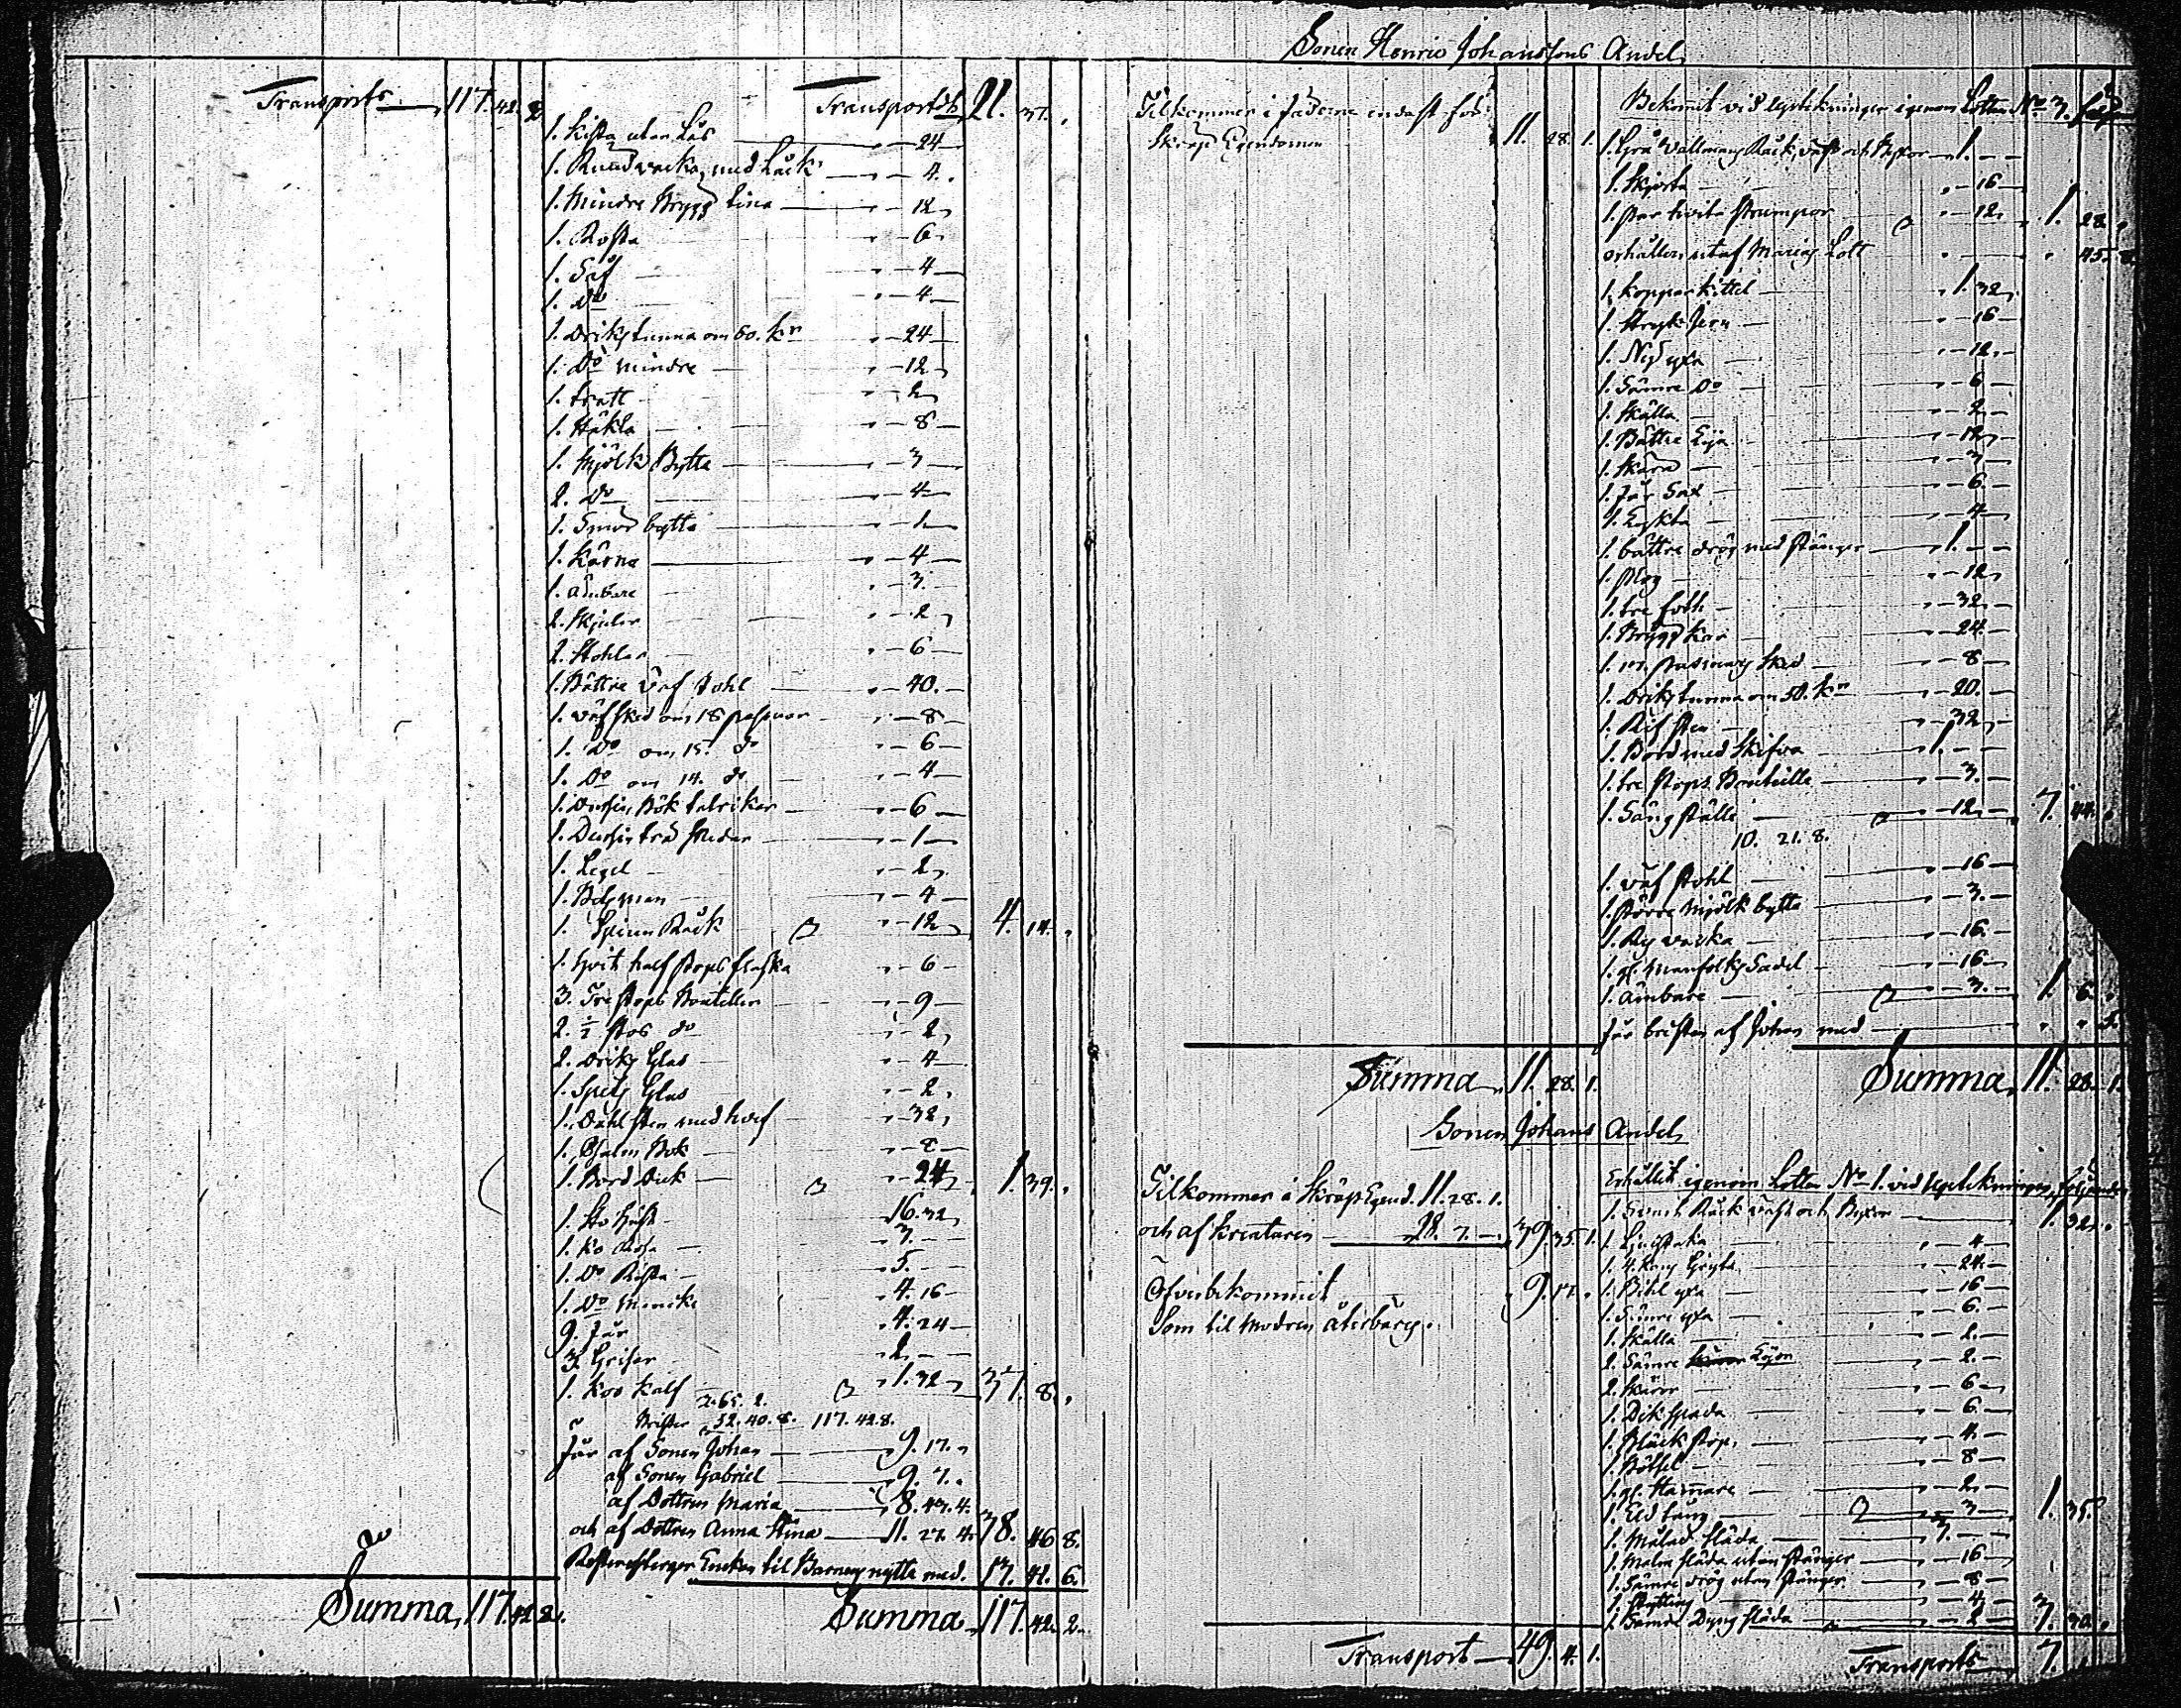 Transports 117. 42. 2
Transport 21. 37.
1. Kista utan Lås 24
1. Rund vacka, med Låck 4.
1. Mindre Brygg tina 12
1. Rosta 6
1. Såf 4
1. Do 4
1. Drikstunna om 60. kr 24
1. Do mindre 12
1. tratt 2
1. Häkla 8
1. Mjölk Bytta 3
2. Do 4
1. Smör bytta 1
1. Kärna 4
1. ämbare 3.
2. Skjulor 2
2. Stohlar 6
1. Bättre Väf Stohl 40.
1. väfsked om 18 pasmor 8
1. Do om 15. do 6
1. Do om 14. do 4
1. Dusin Bök talrikar 6
1. Dusin trä skedar 1
1. Legel 2
1. Besman 4
1. Spinn Råck 12 4. 14.
1. hvit half stops flaska 6
3. Tre stops Bouteller 9
2. 1 stos do 2
2. Driks Glas 4
1. Spets Glas 2
1. Dahl sten med hvef 32
1. Psalm Bok 8
1. Bord Duk 24 1. 39.
1. Sto häst 16. 32
1. Ko 3.
1. Do 5.
1. Do Mansike 4. 16
9. Får 4. 24
3. Grisar 2
1. Koo Kalf 1. 32 37. 8.
265. 2.
Brister 52. 40. 8. 117. 42. 8.
Får af Sonen Johan 9. 17.
af Sonen Gabriel 9. 7.
af Dottren Maria 8. 43. 4.
och af Dottren Anna Stina 11. 27. 4. 38. 46 8.
Enkan til Barnens nytta med. 17. 41. 6.
Summa 117. 42. 2.
Summa 117. 42. 2.
Sonen Henric Johanssons Andel
Tilkommer i fäderne endast för
Skräp Egendomen 11. 28. 1.
Summa 11. 28. 1.
Bekommit vid utstekninger igenom Lotten No 3. följe
1. Grå Vallmans Råck, väst och Byxor 1.
1. Skjorta 16
1. par hvita strumpor 12 1. 28.
erhållen utaf Marias Lott 45. 8
1. kopparkittel 1. 32
1. Stryk Jern 16
1. Ny yxa 12
1. Sämre Do 6
1. Skälla 2
1. Bättre Lija 12
1. Skära 3
1. Får Sax 6.
1. Lykta 4
1. bättre drög med stänger 1.
1. Plog 12
1. tre foth 32
1. Brygg kar 24
1. pasmars sked 8
1. Drikstunna om 50. kr 20.
1. Rif sten 32
1. Bord med Skifva 1.
1. tre stops Bouteille 3.
1. Säng ställe 12 7. 44.
10. 21. 8.
1. väf stohl 16
1. större Mjölk bytta 3.
1. Ry vacka 16.
1. gl. manfolks Sadel 16
1. ämbare 3. 1. 6.
Får bristen af Johan med 5.
Summa 11. 28. 1.
Sonen Johans Andel
Tilkommer i Skräp Egend. 11. 28. 1.
och af kreaturen 28. 7. 39. 35. 1.
Öfverbekommit 9. 17.
Som til modren återbärs.
Transport 49. 4. 1.
Erhållit igenom Lotten No 1. vid utstekningen följande
Råck väst och Byxor 1. 32.
1. Ljusstaka 4
1. 4. Kans Gryta 24
1. Bihl yxa 16
1. Sämre yxa 6.
1. Skälla 2.
2. Sämre Lijor 2.
2. Skäror 6
1. Dik spada 6.
1. Bläck stop 4.
1. Böttel 8
1. gl. Hamare 2
1. Eld tång 3 1. 35.
1. Målad släda 3.
1. Malm släda utan stänger 16
1. Sämre drög utan stänger 8
1. 4
1. Sämre Dyng släda 2 3. 30.
Transports 7.